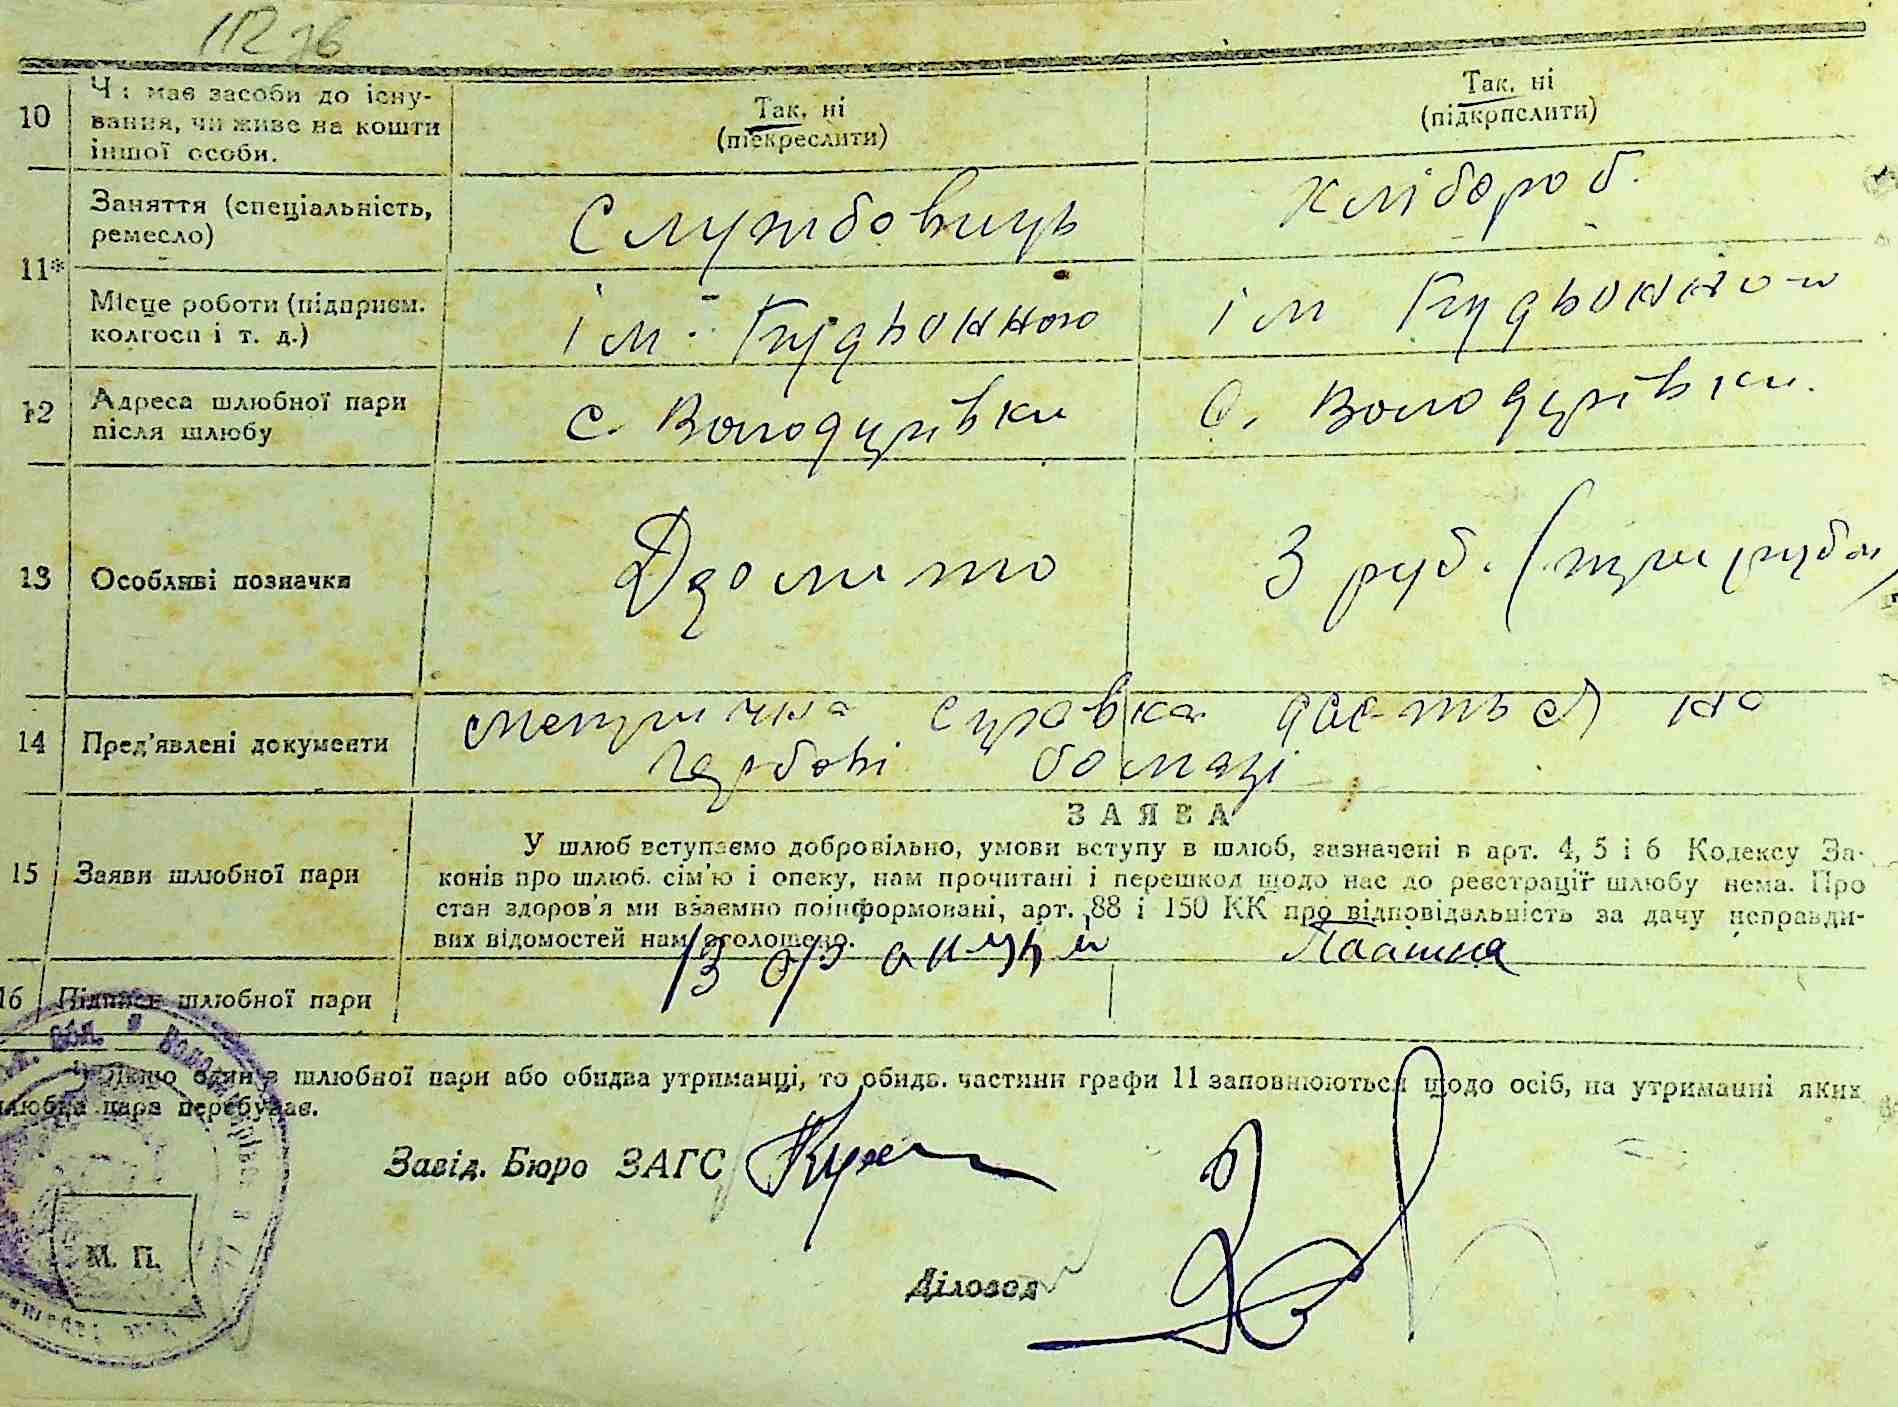 112 зв
10
Чи має засоби до існу-
вання, чи живе на кошти
іншої особи.
Так, ні
(підкреслити)
Так, ні
(підкрпслити)
11*
Заняття (спеціальність,
ремесло)
Службовець
хлібороб.
Місце роботи (підприєм.
колгосп і т. д.)
ім. Будьонного
ім Будьонного
12
Адреса шлюбної пари
після шлюбу
с. Володимирівки
с. Володимирівки.
13
Особливі позначки
3 руб. (три рубля)
14
Пред'явлені документи
метрична справка дається на
гербові бомазі
ЗАЯВА
15
Заяви шлюбної пари
У шлюб вступаємо добровільно, умови вступу в шлюб, зазначені в арт. 4, 5 і 6 Кодексу За-
конів про шлюб. сім'ю і опеку, нам прочитані і перешкод щодо нас до реєстрації шлюбу нема. Про
стан здоров'я ми взаємно поінформовані, арт. 88 і 150 КК про відповідальність за дачу неправди-
вих відомостей нам оголошено.
16
Підписи шлюбної пари
*) Якщо один з шлюбної пари або обидва утриманці, то обидв. частини графи 11 заповнюються щодо осіб, на утриманні яких
шлюбна пара перебуває.
Завід. Бюро ЗАГС
М. П.
Діловод